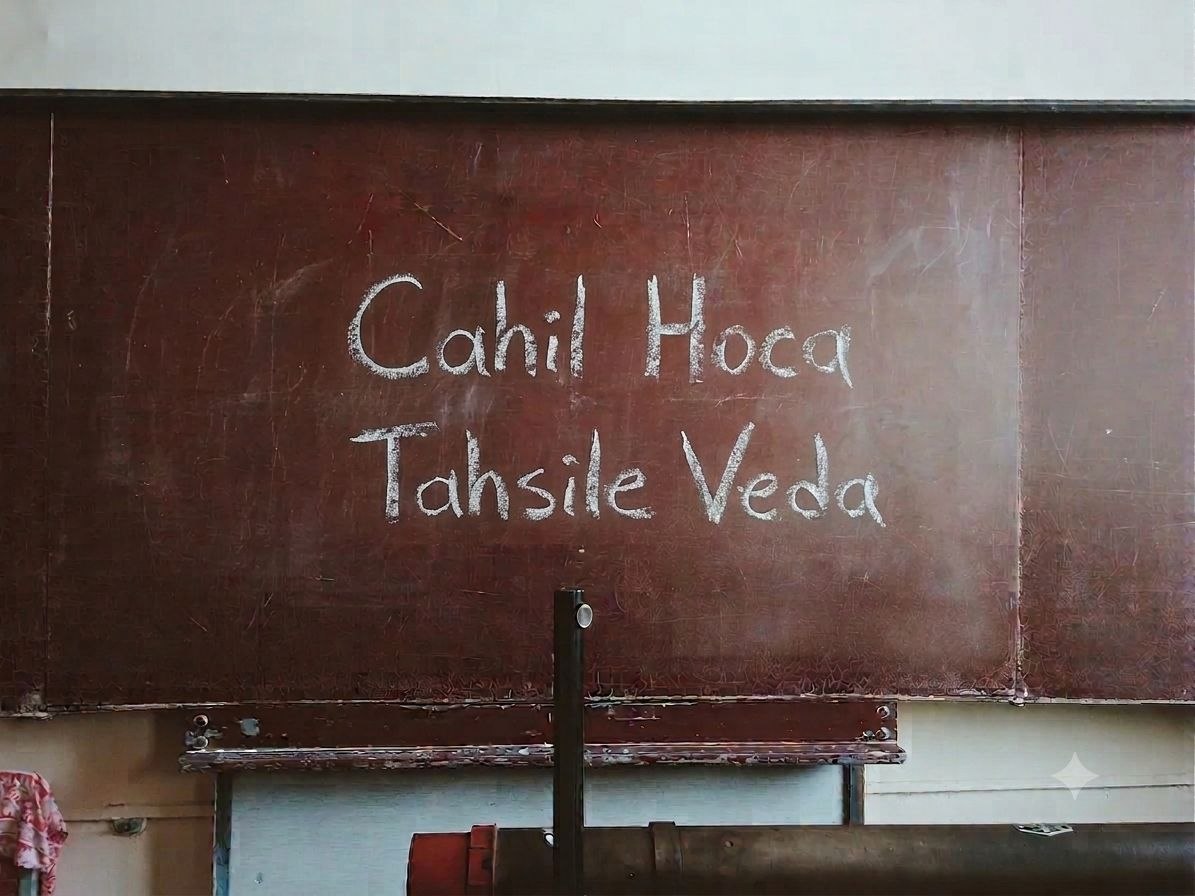 Cahil Hoca
Tahsile Veda